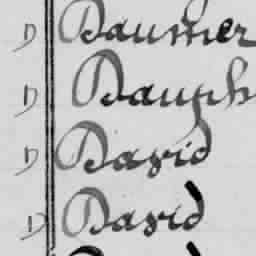 D Baumer
D Bauph
D David
D David